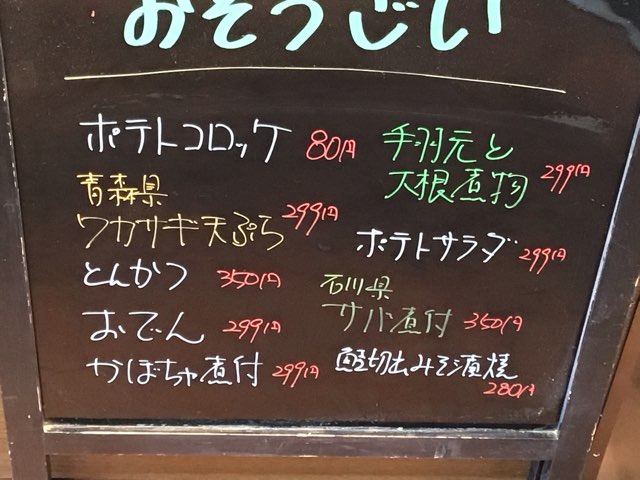 おそうじい
ポテトコロッケ 80円
青森県
ワカサギ天ぷら 299円
とんかつ 350円
おでん 299円
かぼちゃ煮付 299円
手羽元と
大根煮物 299円
ポテトサラダ 299円
石川県
サバ煮付 350円
切出みそ漬焼
280円